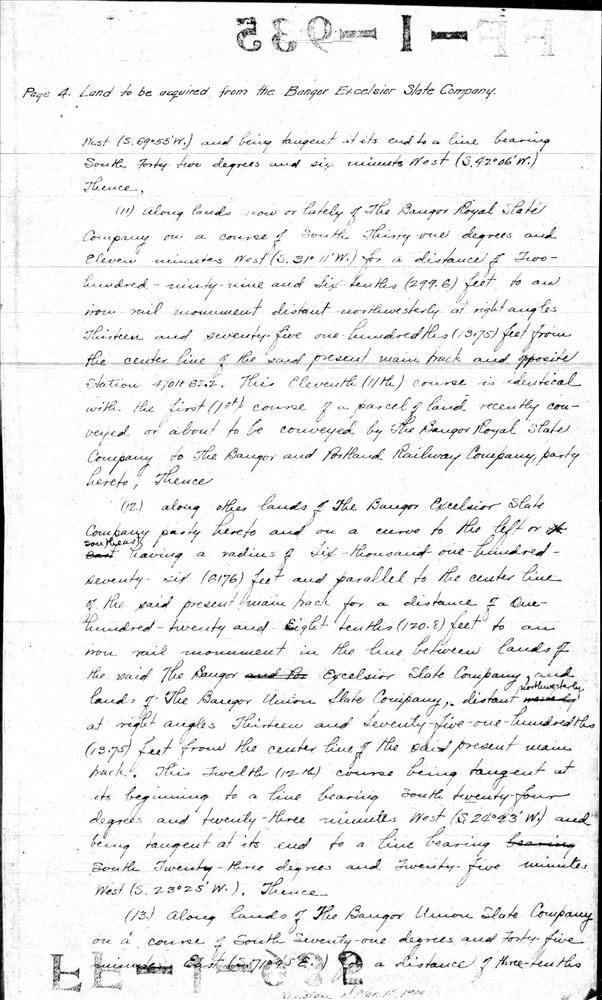 FF-1-935
Page 4. Land to be acquired from the Bangor Excelsior Slate Company.
West (S.69°55'W.) and being tangent at its end to a line bearing
South Forty two degrees and six minutes West (S.42°06'W.)
Thence,
(11) Along lands now or lately of The Bangor Royal Slate
Company on a course of South Thirty-one degrees and
Eleven minutes West (S.31°11'W.) for a distance of Two-
hundred-ninety-nine and Six-tenths (299.6) feet to an
iron rail monument distant northwesterly at right angles
Thirteen and seventy-five one-hundredths (13.75) feet from
the center line of the said present main track and opposite
Station This Eleventh (11th) course is identical
with the first (1st) course of a parcel of land recently con-
veyed or about to be conveyed by The Bangor Royal Slate
Company to The Bangor and Portland Railway Company, party
hereto; Thence
(12) along other lands of The Bangor Excelsior Slate
Company party hereto and on a curve to the left or
southeast having a radius of Six-thousand-one-hundred-
seventy-six (6176) feet and parallel to the center line
of the said present main track for a distance of One-
hundred-twenty and Eight tenths (120.8) feet to an
iron rail monument in the line between lands of
the said The Bangor and Po Excelsior Slate Company, and
lands of The Bangor Union Slate Company, distant northwesterly
at right angles Thirteen and Seventy-five-one-hundredths
(13.75) feet from the center line of the said present main
track. This Twelfth (12th) course being tangent at
its beginning to a line bearing South twenty-four
degrees and twenty-three minutes West (S.24°23'W.) and
being tangent at its end to a line bearing bearing
South Twenty-three degrees and Twenty-five minutes
West (S. 23°25'W.). Thence
(13) Along lands of The Bangor Union Slate Company
on a course of South Seventy-one degrees and Forty-five
minutes East (S.71°45'E.) for a distance of three-tenths
FF-1-932